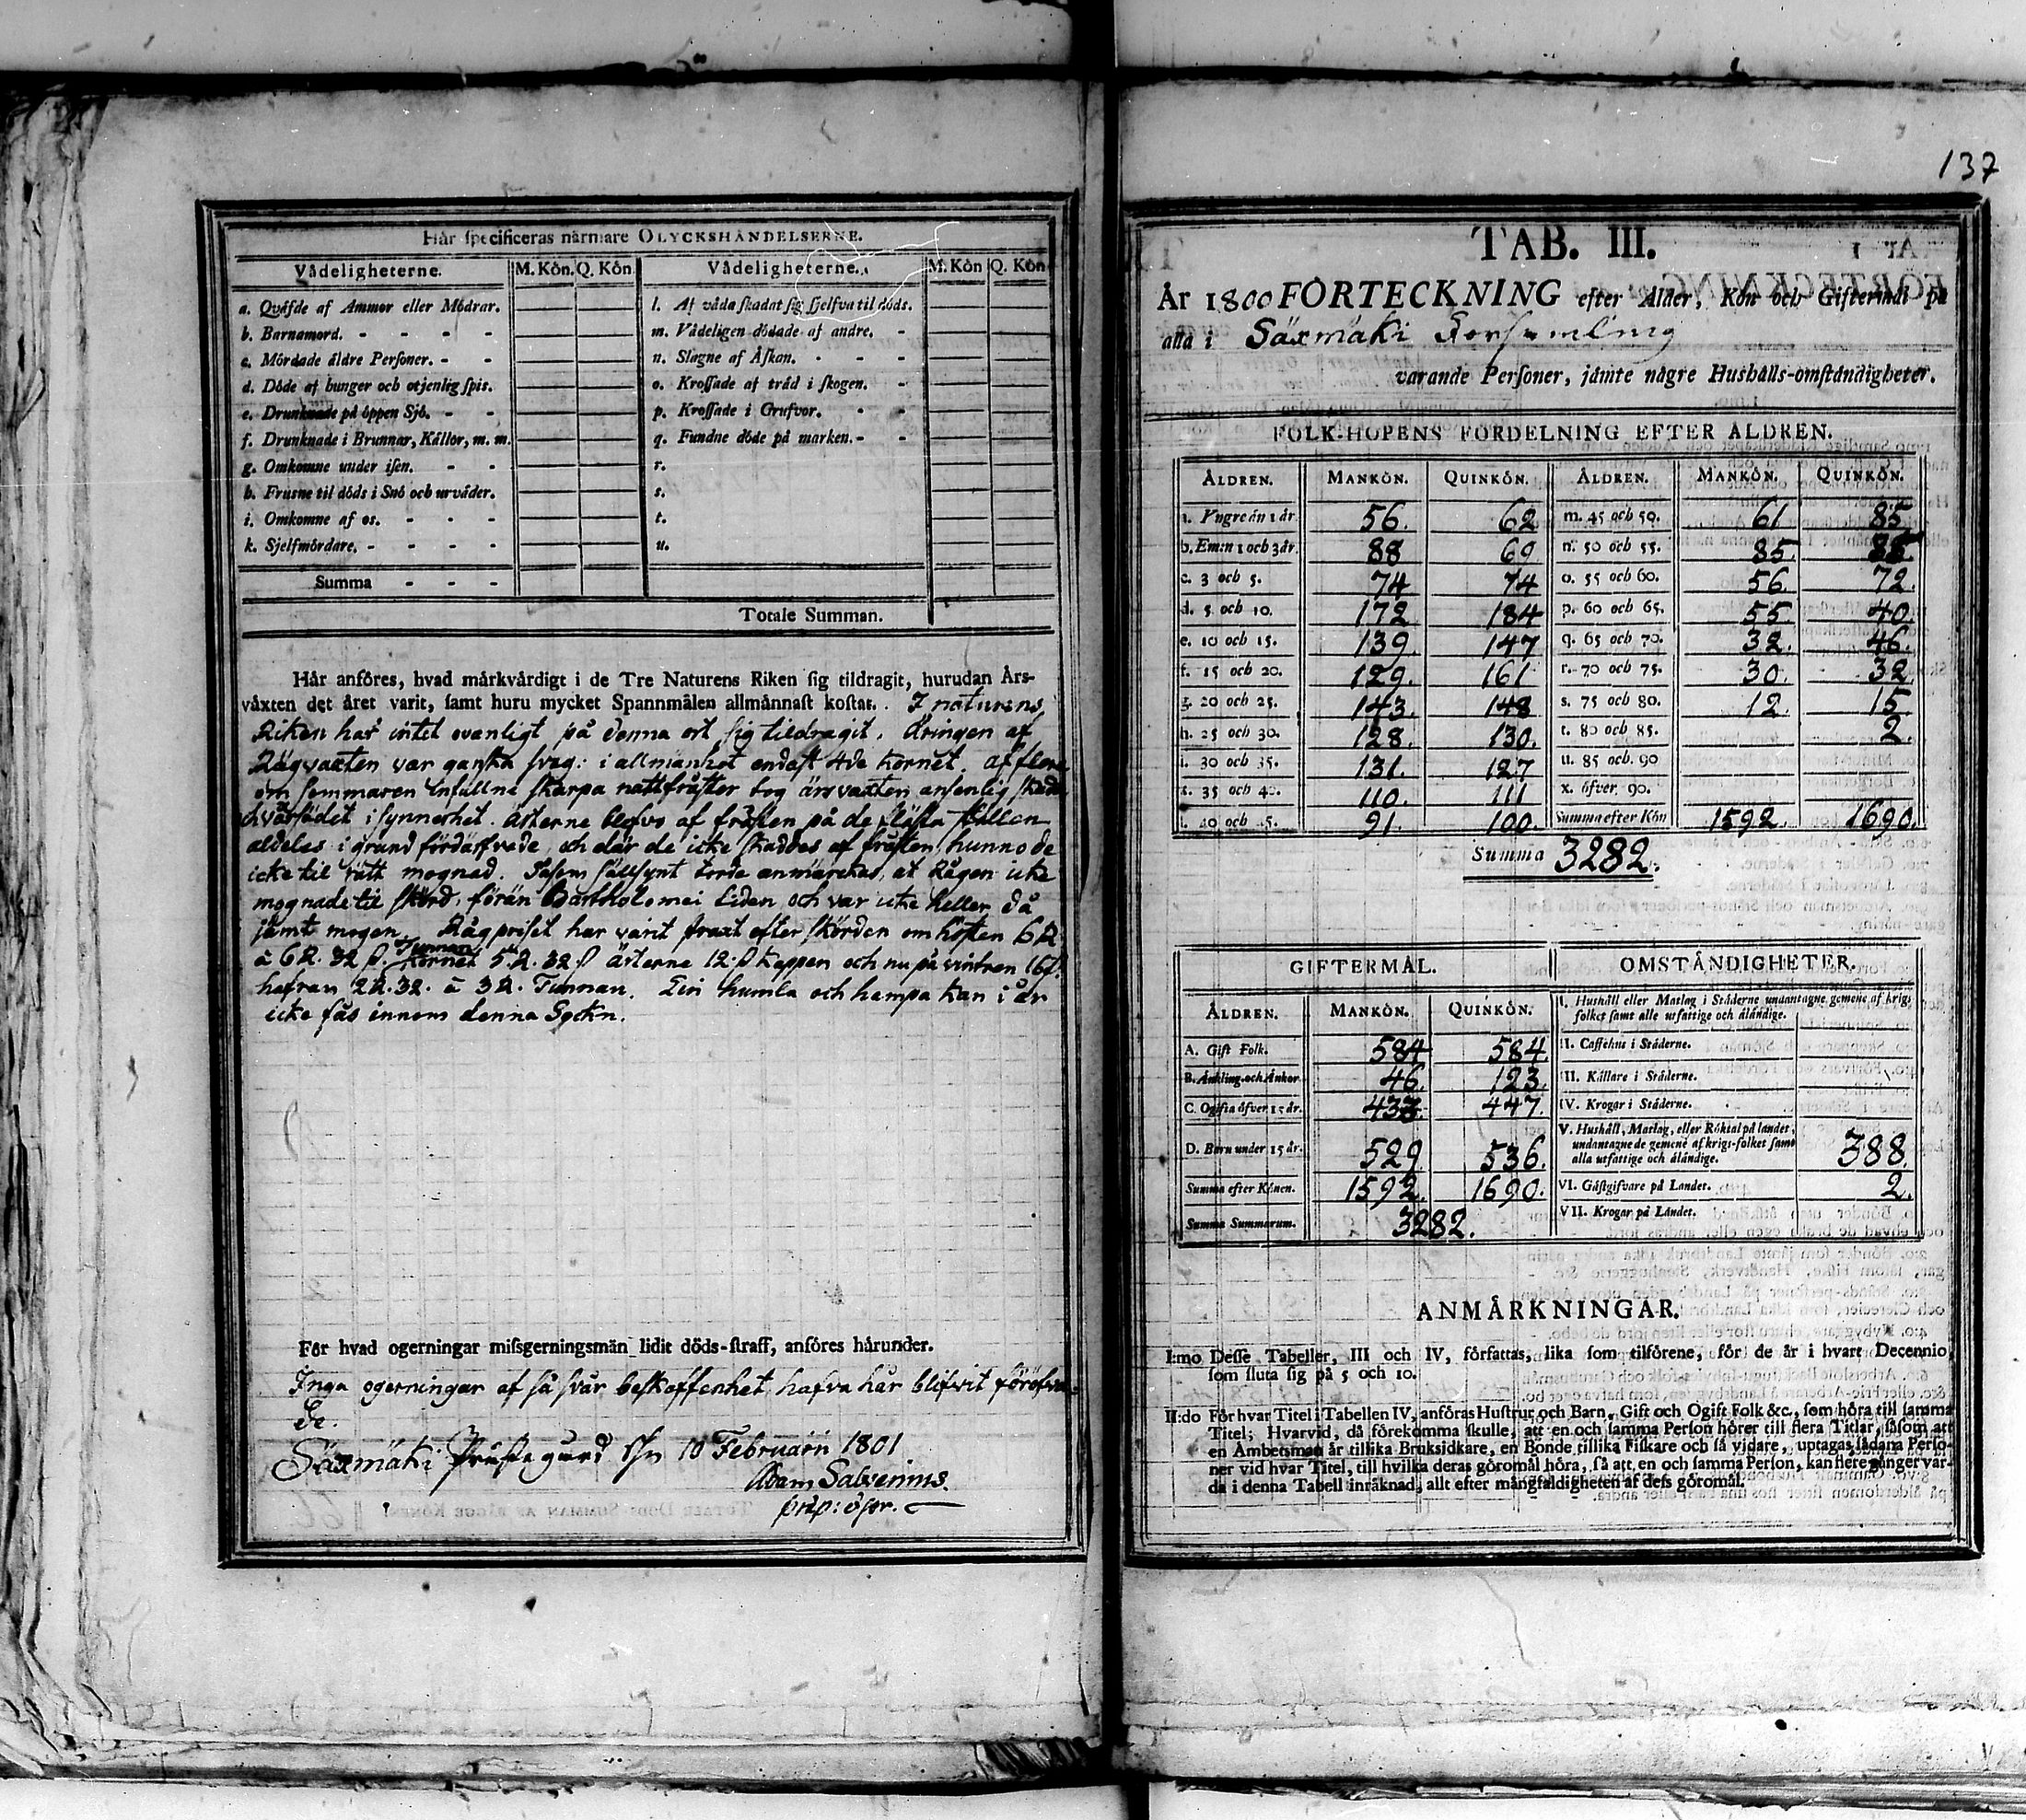 Hår specificeras nårmare OLYCKSHÅNDELSERNE.
Vådeligheterne. M. Kôn. Q. Kôn Vådeligheterne. M. Kôn Q. Kôn
a. Qvåfde af Ammor eller Mödrar.
b. Barnamord.
c. Mördade åldre Personer.
d. Döde af hunger och otjenlig spis.
e. Drunknade på öppen Sjö.
f. Drunknade i Brunnar, Kållor, m. m.
g. Omkomne under isen.
h. Frusne til döds i Snö och urvåder.
i. Omkomne af os.
k. Sjelfmördare.
Summa
l. Af våda skadat sig sjelfva til döds.
m. Vådeligen dödade af andre.
n. Slagne af Åskan.
o. Krossade af tråd i skogen.
p. Krossade i Grufvor.
q. Fundne döde på marken.
r.
s.
t.
u.
Totale Summan.
Hår anföres, hvad mårkvårdigt i de Tre Naturens Riken sig tildragit, hurudan Års-
våxten det året varit, samt huru mycket Spannmålen allmånnast kostat. I naturens
Riken har intet ovanligt på denna ort sig tildragit. Äringen af
Rågvaxten var ganska svag: i allmänhet endast 4de Kornet. af flere
om sommaren infallne skarpa nattfråster tog årsvaxten ansenlig skada
hvarsädet i synnerhet. Ärterne blefvo af frosten på de flästa ställen
aldeles i grund fördärfvade, och där de icke skaddes af frosten, hunno de
icke til rätt mognad. Såsom sällsynt torde anmärckas, at Rågen icke
mognade til skörd, förän Bartholomei tiden och var icke heller då
jämt mogen. Rågpriset har varit straxt efter skörden om hösten 6 R
à 6 R. 32 s. Tunnan Kornet 5 R. 32 s ärterne 12 s Kappen och nu på vintren 16 s.
hafran 2 R. 32. à 3 R. Tunnan. Lin humla och hampa kan i år
icke fås innom denna Sockn.
För hvad ogerningar missgerningsmån lidit döds-straff, anföres hårunder.
Inga ogerningar af så svår beskaffenhet, hafva här blifvit föröfva-
de.
Säxmäki Prästegård den 10 Februarii 1801
Adam Salvenius.
137
TAB. III.
År 1800 FÖRTECKNING efter Ålder, Kön och Giftermål på
alla i Säxmäki Församling
varande Personer, jåmte någre Hushålls-omståndigheter.
FOLK-HOPENS FÖRDELNING EFTER ÅLDREN.
ÅLDREN. MANKÖN. QUINKÖN. ÅLDREN. MANKÖN. QUINKÖN.
a. Yngre ån 1 år 56. 62 m. 45 och 50. 61 85
b. Em:n 1 och 3 år. 88 69 n. 50 och 55. 85
c. 3 och 5. 74 74 o. 55 och 60. 56 72.
d. 5 och 10. 172 184 p. 60 och 65. 55. 40.
e. 10 och 15. 139. 147 q. 65 och 70. 32. 46.
f. 15 och 20. 129. 161 r. 70 och 75. 30. 32
g. 20 och 25. 143. 148 s. 75 och 80. 12. 15
h. 25 och 30. 128. 130. t. 80 och 85. 2.
i. 30 och 35. 131. 127 u. 85 och 90
k. 35 och 40. 110. 111 x. öfver 90.
l. 40 och 45. 91. 100. Summa efter Kön 1592. 1690.
Summa 3282.
GIFTERMÅL. OMSTÅNDIGHETER.
ÅLDREN. MANKÖN. QUINKÖN.
A. Gift Folk. 584 584.
B. Ånkling. och Ånkor 46. 123.
C. Ogifta öfver 15 år. 433 447.
D. Barn under 15 år. 529 536.
Summa efter Könen. 1592. 1690.
Summa Summarum. 3282.
I. Hushåll eller Matlag i Ståderne undantagne gemene af krigs-
folket samt alle utfattige och ålåndige.
II. Caffehus i Ståderne.
III. Kållare i Ståderne.
IV. Krogar i Ståderne.
V. Hushåll, Matlag, eller Röktal på landet,
undantagne de gemene af krigs-folket samt
alla utfattige och ålåndige. 388.
VI. Gåstgifvare på Landet. 2.
VII. Krogar på Landet.
ANMÅRKNINGAR.
I:mo Desse Tabeller, III och IV, författas, lika som tilförene, för de år i hvart Decennio,
som sluta sig på 5 och 10.
II:do För hvar Titel i Tabellen IV, anföras Hustrur och Barn, Gift och Ogift Folk &c., som höra till samma
Titel; Hvarvid, då förekomma skulle, att en och samma Person hörer till flera Titlar, såsom att
en Åmbetsman år tillika Bruksidkare, en Bonde tillika Fiskare och så vidare, uptagas sådana Perso-
ner vid hvar Titel, till hvilka deras göromål höra, så att en och samma Person, kan flere gånger var-
da i denna Tabell inråknad, allt efter mångfaldigheten af dess göromål.